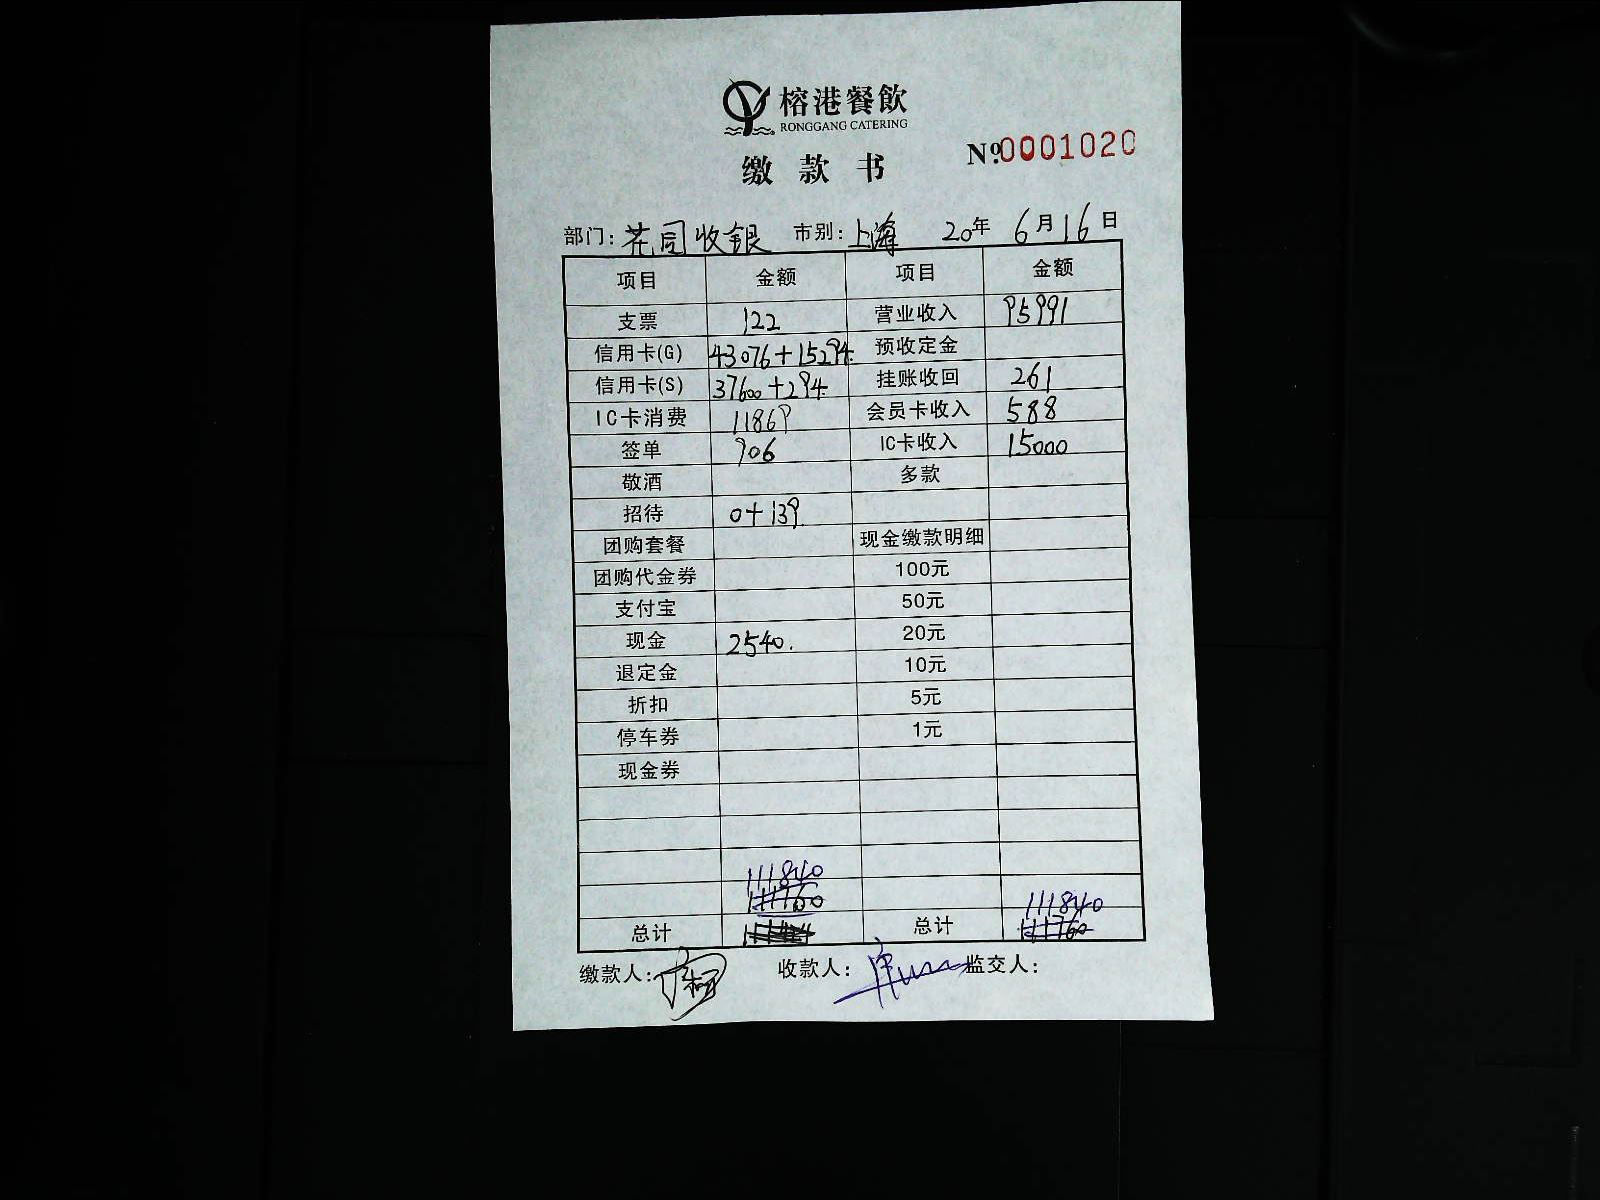 榕港餐飲
RONGGANG CATERING
缴款书
№0001020
部门: 花园收银 市别: 上海 20年 6月16日
项目 金额 项目 金额
支票 122 营业收入 95991
信用卡(G) 43076+15294. 预收定金
信用卡(S) 37600+294. 挂账收回 261
IC卡消费 11869 会员卡收入 588
签单 906 IC卡收入 15000
敬酒 多款
招待 0+139.
团购套餐 现金缴款明细
团购代金券 100元
支付宝 50元
现金 2540. 20元
退定金 10元
折扣 5元
停车券 1元
现金券
111840
111760 111840
总计 总计 111760
缴款人: 收款人: 监交人: